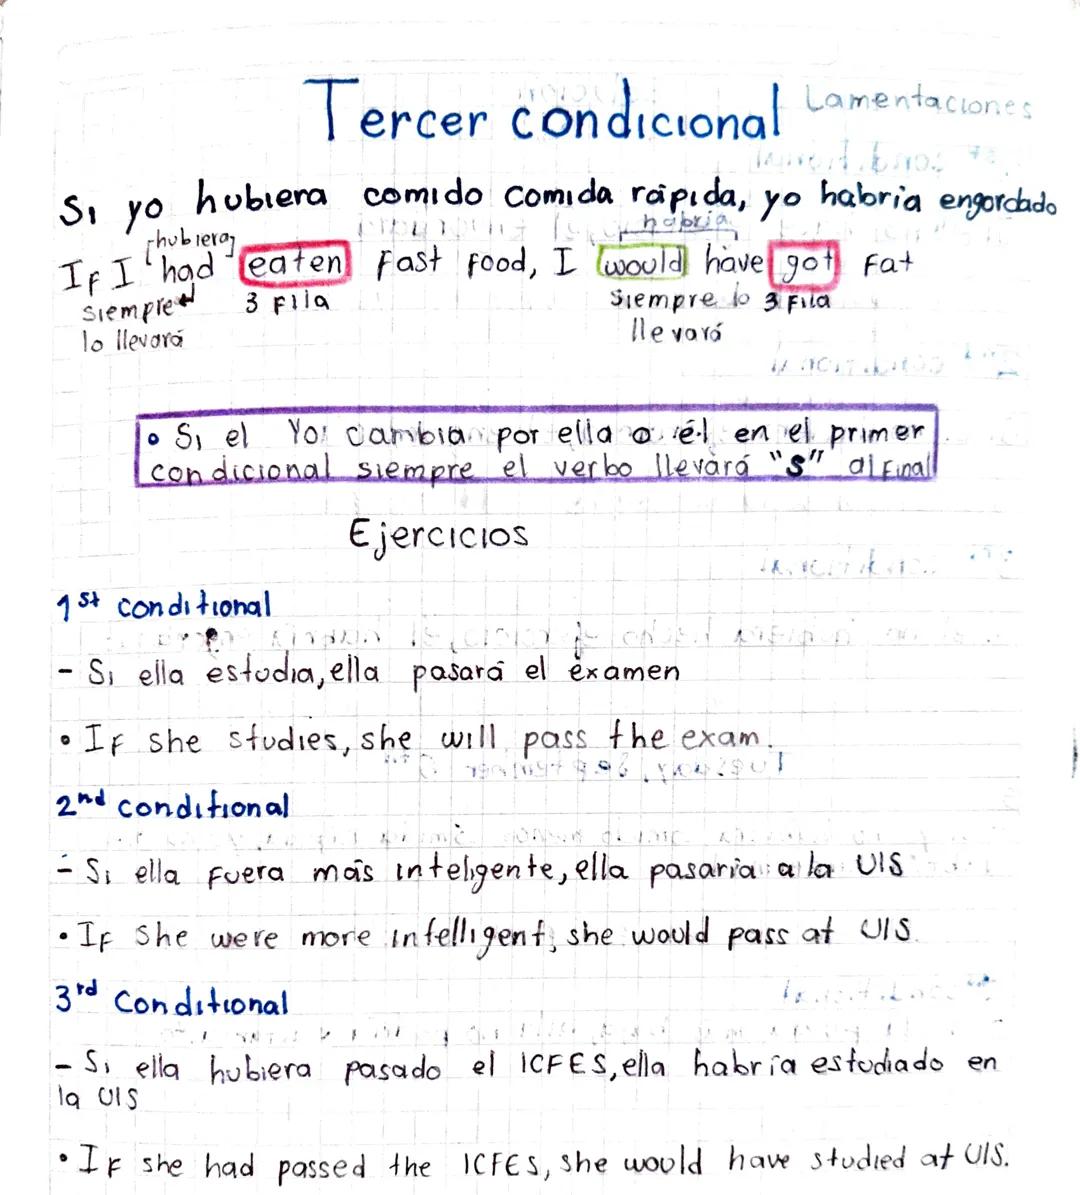 Tercer condicional Lamentaciones
Si yo hubiera comido comida rápida, yo habria engordado
hubiera habria
If I had eaten fast food, I would have got fat
siempre 3 fila siempre lo 3 fila
lo llevará llevará
• Si el Yo: cambia por ella o él en el primer
condicional siempre el verbo llevará "s" al final
Ejercicios
1st conditional
- Si ella estudia, ella pasará el examen
• If she studies, she will pass the exam.
2nd conditional
- Si ella fuera más inteligente, ella pasaria a la UIS
• If she were more intelligent, she would pass at UIS.
3rd Conditional
- Si ella hubiera pasado el ICFES, ella habría estudiado en
la UIS
• If she had passed the ICFES, she would have studied at UIS.